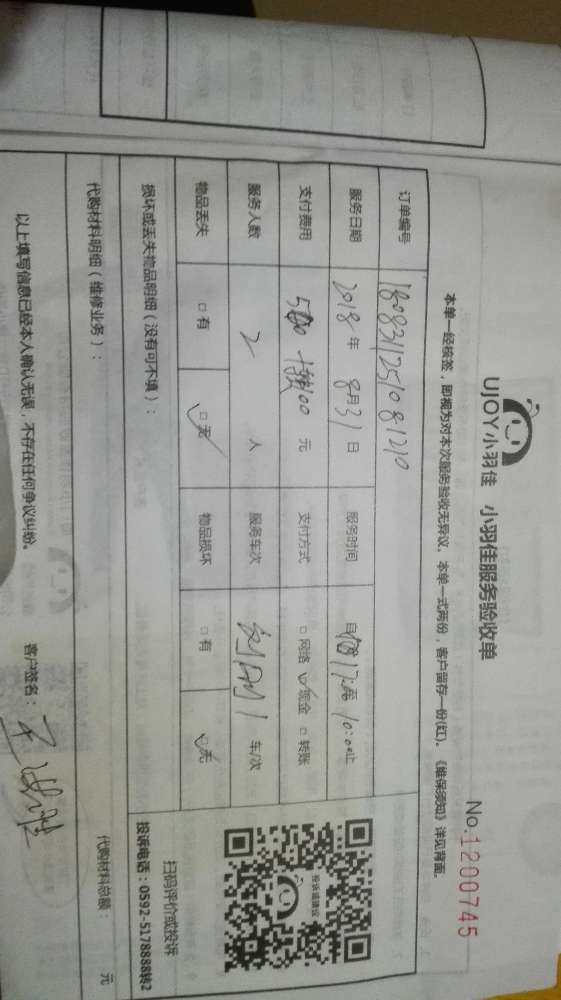 UJOY小羽佳 小羽佳服务验收单
No.1200745
本单一经核签，即视为对本次服务验收无异议。本单一式两份，客户留存一份(红)。《维保须知》详见背面。
订单编号 1808311251081210
服务日期 2018年 8月31日 服务时间 自 止
支付费用 元 支付方式 □网络 ☑现金 □转账
服务人数 2 人 服务车次 1 车/次
物品丢失 □有 ☑无 物品损坏 □有 ☑无
投诉或建议
扫码评价或投诉
投诉电话：0592-5178888转2
损坏或丢失物品明细（没有可不填）：
代购材料明细（维修业务）：
代购材料总额： 元
以上填写信息已经本人确认无误，不存在任何争议纠纷。 客户签名：